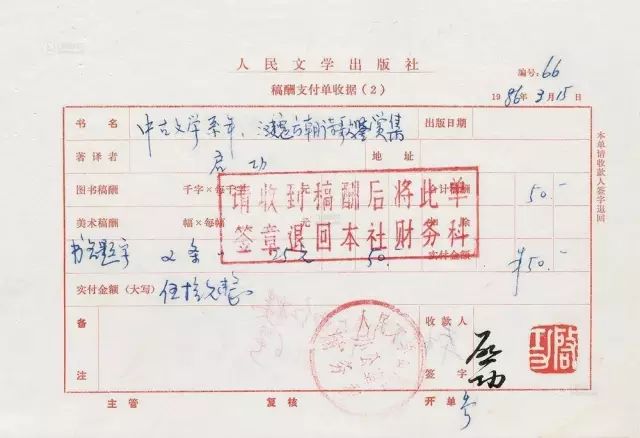 人民文学出版社
稿酬支付单收据（2）
编号：66
1986年3月15日
书名 中古文学系年、汉魏六朝诗歌鉴赏集 出版日期
著译者 启功 地址
图书稿酬 千字×每千 计稿酬 50.-
请收到稿酬后将此单
签章退回本社财务科
美术稿酬 幅×每幅 元 扣除
书名题字 2条 25元 50.- 实付金额 ¥50.-
实付金额（大写） 伍拾元整
备注
收款人
签字 启功
主管 复核 开单
本单请收款人签字退回